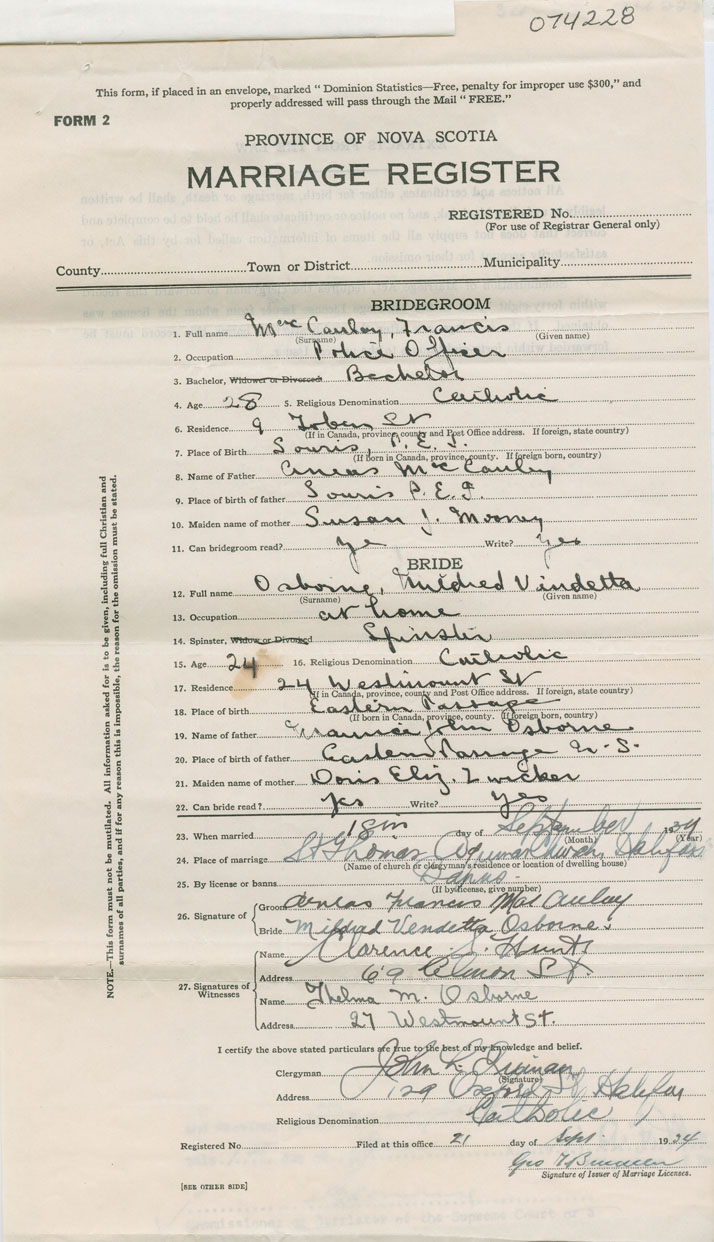 074228
This form, if placed in an envelope, marked "Dominion Statistics—Free, penalty for improper use $300," and
properly addressed will pass through the Mail "FREE."
FORM 2
PROVINCE OF NOVA SCOTIA
MARRIAGE REGISTER
REGISTERED No.
(For use of Registrar General only)
County Town or District Municipality
BRIDEGROOM
1. Full name MacCaulay, Francis
(Surname) (Given name)
2. Occupation Police Officer
3. Bachelor, Widower or Divorced Bachelor
4. Age 28 5. Religious Denomination Catholic
6. Residence 9 Tobin St
(If in Canada, province, county and Post Office address. If foreign, state country)
7. Place of Birth Souris, P.E.I.
(If born in Canada, province, county. If foreign born, country)
8. Name of Father Aneas MacCauley
9. Place of birth of father Souris P.E.I.
10. Maiden name of mother Susan J. Mooney
11. Can bridegroom read? Ye Write? Yes
BRIDE
12. Full name Osborne, Mildred Vindetta
(Surname) (Given name)
13. Occupation at home
14. Spinster, Widow or Divorced Spinster
15. Age 24 16. Religious Denomination Catholic
17. Residence 24 Westmount St
(If in Canada, province, county and Post Office address. If foreign, state country)
18. Place of birth Eastern Passage
(If born in Canada, province, county. If foreign born, country)
19. Name of father Maurice John Osborne
20. Place of birth of father Eastern Passage N.S.
21. Maiden name of mother Doris Eliz. Zwicker
22. Can bride read? Yes Write? Yes
23. When married 18th day of September 19
(Month) (Year)
24. Place of marriage St Thomas Aquinas Church, Halifax
(Name of church or clergyman's residence or location of dwelling house)
25. By license or banns Banns
(If by license, give number)
26. Signature of Groom Aeneas Francis MacAulay
Bride Mildred Vendetta Osborne
27. Signatures of Witnesses Name Clarence S. Hunt
Address 69 Almon St
Name Thelma M. Osborne
Address 27 Westmount St.
I certify the above stated particulars are true to the best of my knowledge and belief.
Clergyman John L. Quinan
(Signature)
Address 129 Oxford St, Halifax
Religious Denomination Catholic
Registered No. Filed at this office 21 day of Sept. 19
Geo
Signature of Issuer of Marriage Licenses.
[SEE OTHER SIDE]
NOTE.—This form must not be mutilated. All information asked for is to be given, including full Christian and
surnames of all parties, and if for any reason this is impossible, the reason for the omission must be stated.